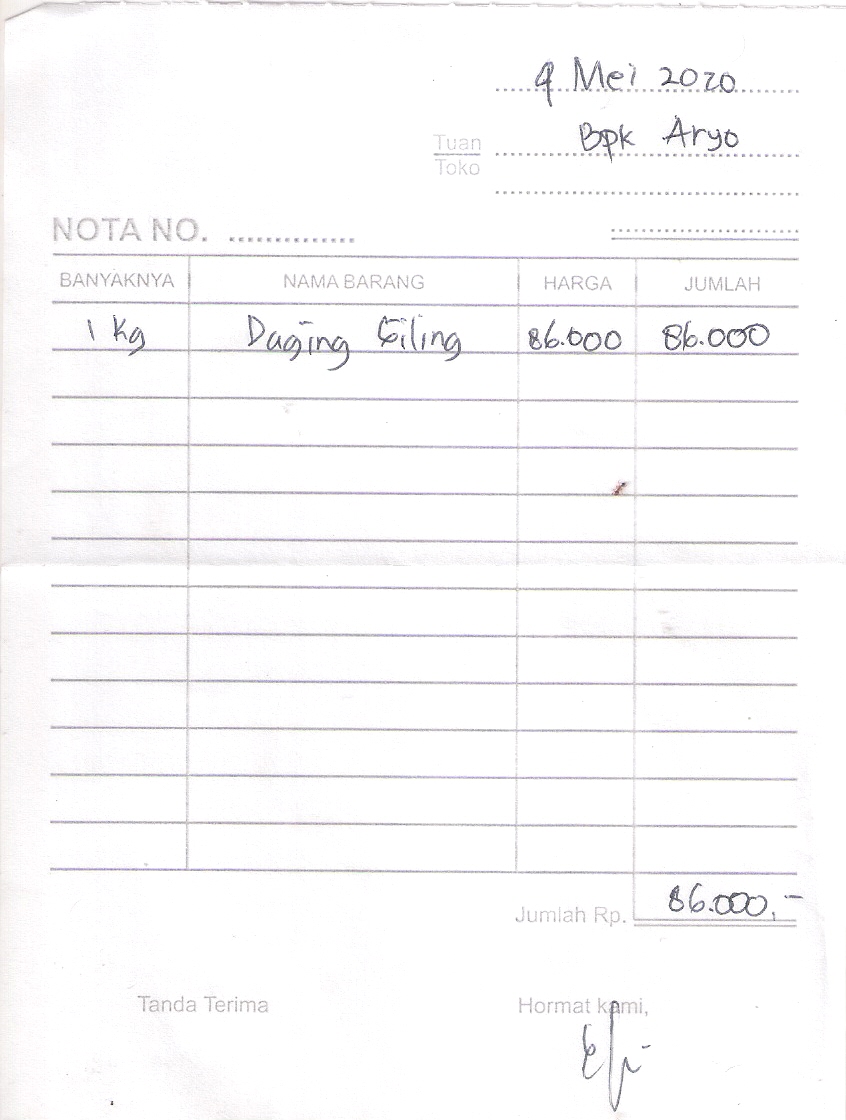 9 Mei 2020
Tuan Bpk Aryo
Toko
NOTA NO. ..............
BANYAKNYA NAMA BARANG HARGA JUMLAH
1 Kg Daging Giling 86.000 86.000
Jumlah Rp. 86.000,-
Tanda Terima Hormat kami,